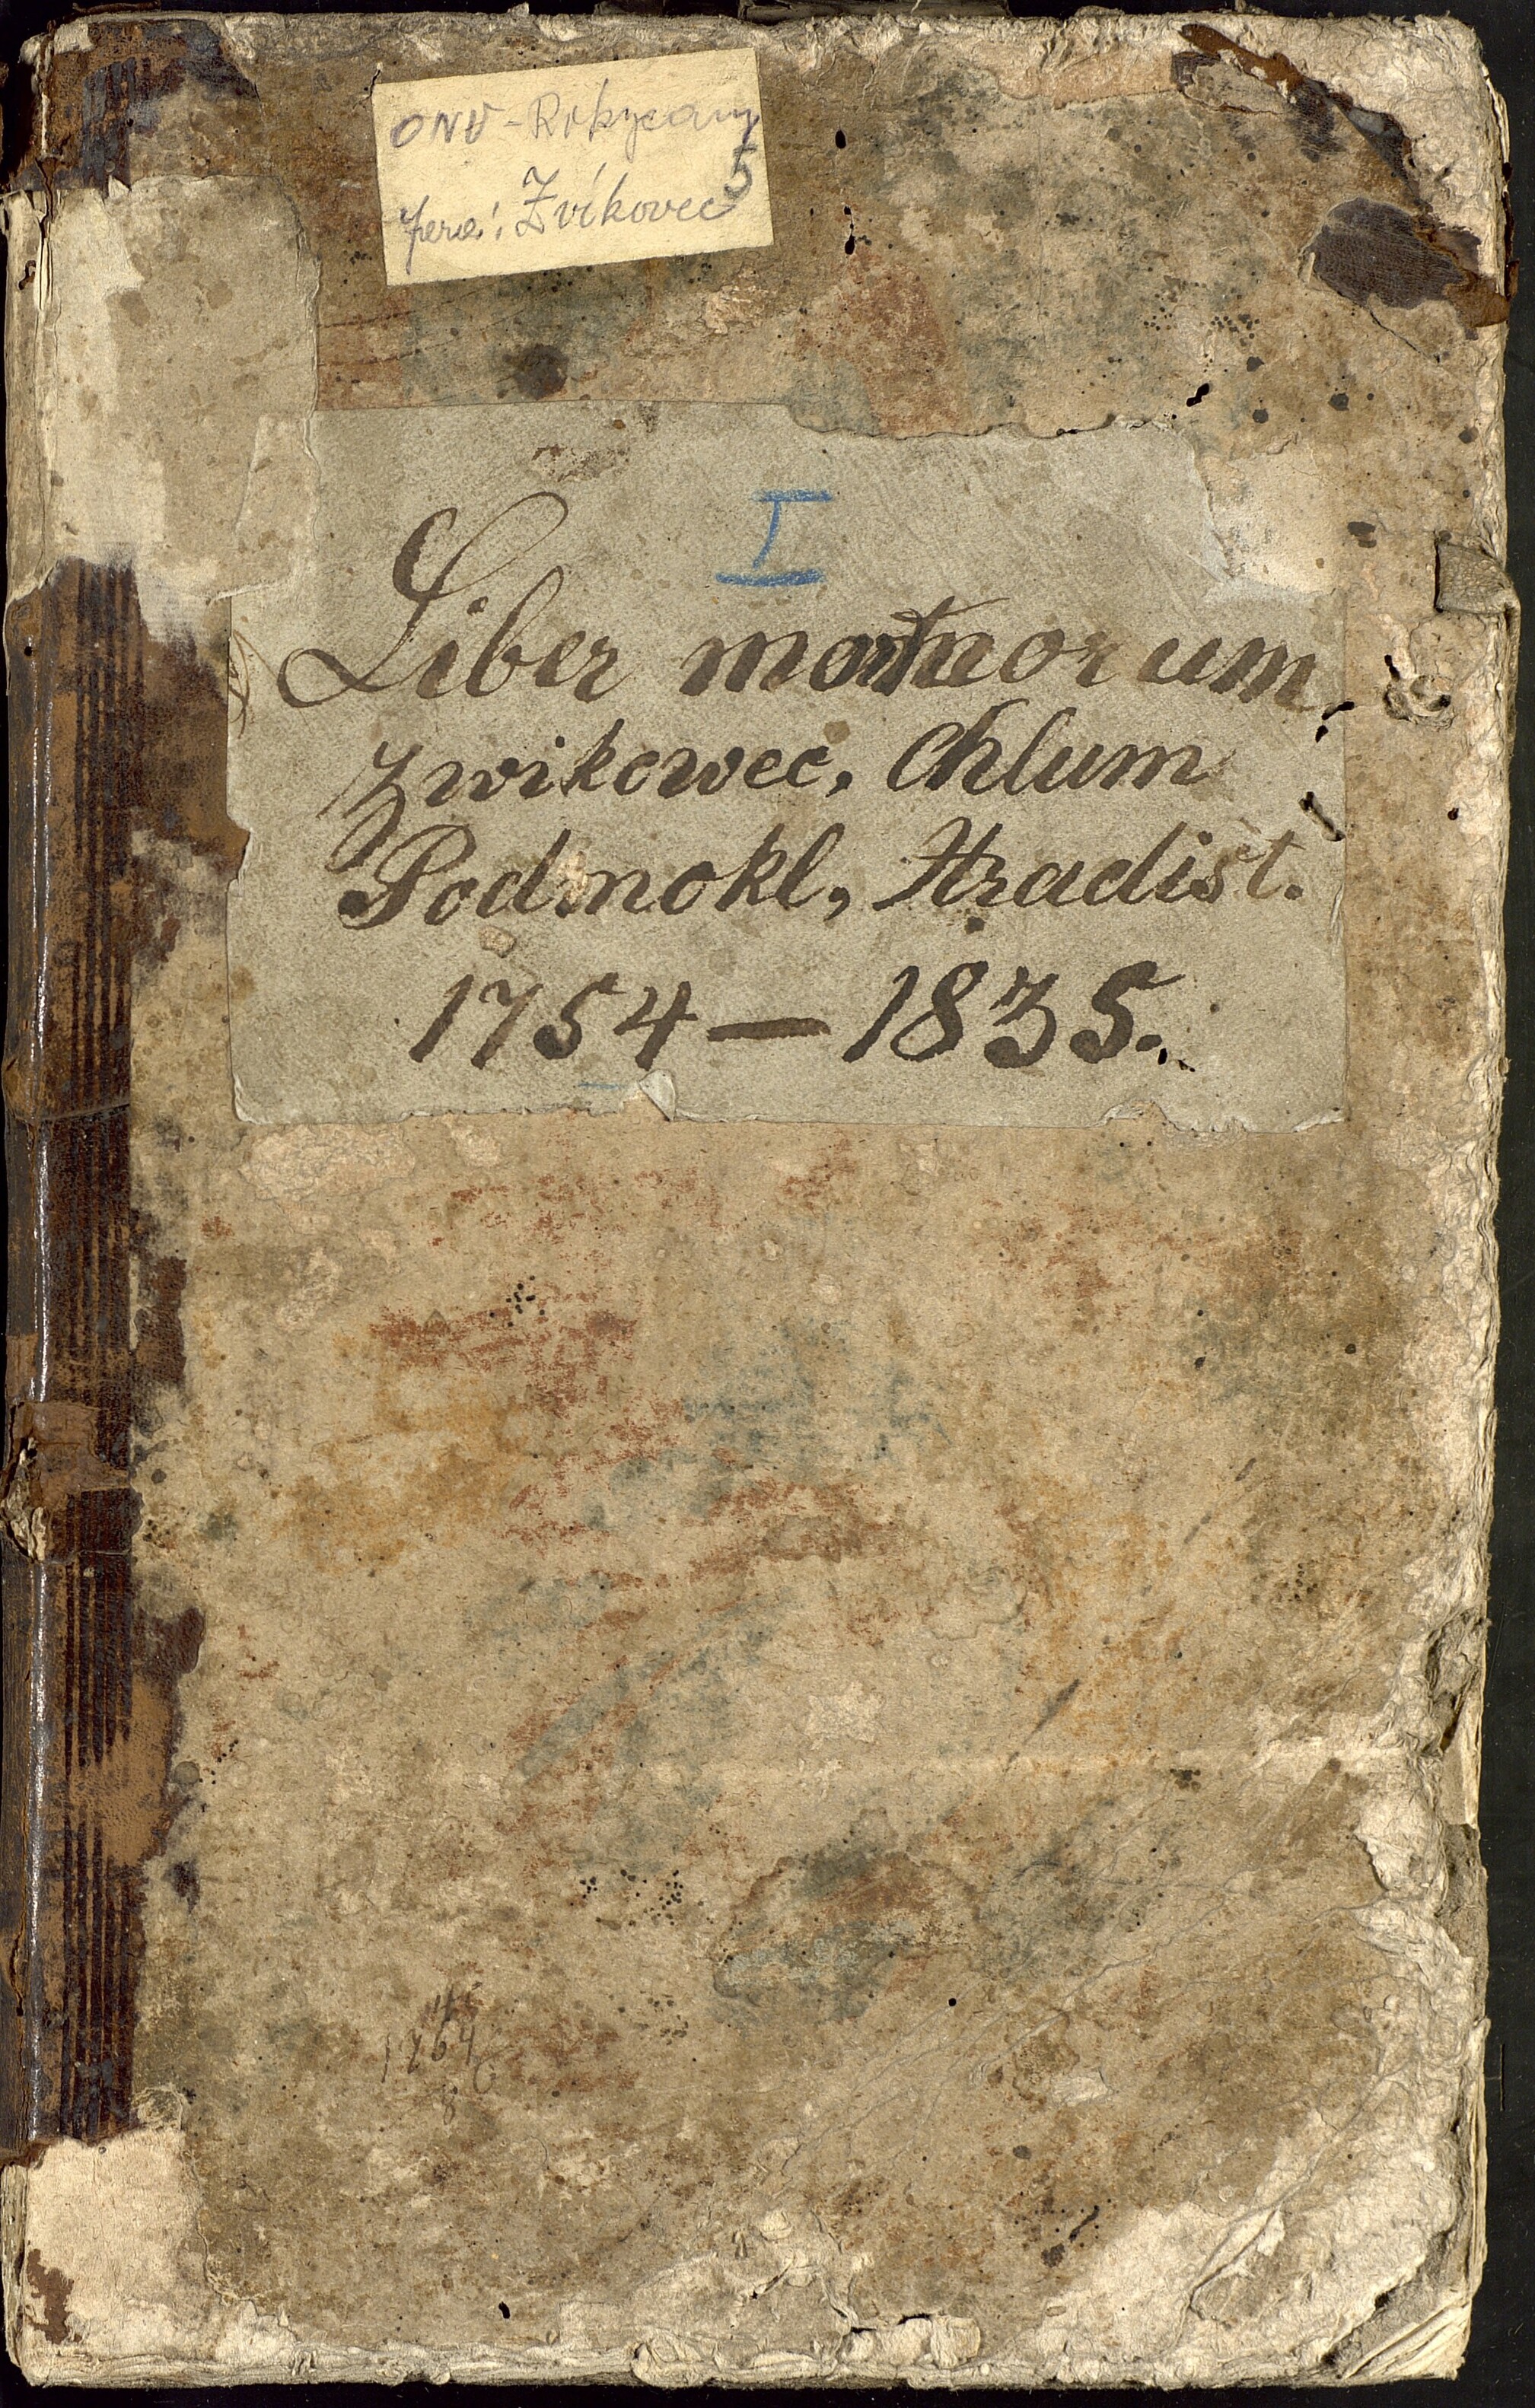 ONV - Rokycany
5
fara: Zvíkovec
I
Liber mortuorum.
Zwikowec, Chlum
Podmokl, Hradišt.
1754 — 1835.
1764
8